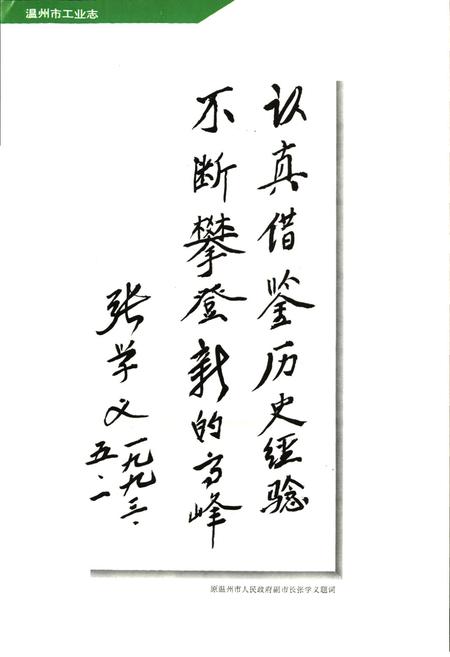 温州市工业志
认真借鉴历史经验
不断攀登新的高峰
张学义
一九九三.
五.二
原温州市人民政府副市长张学义题词